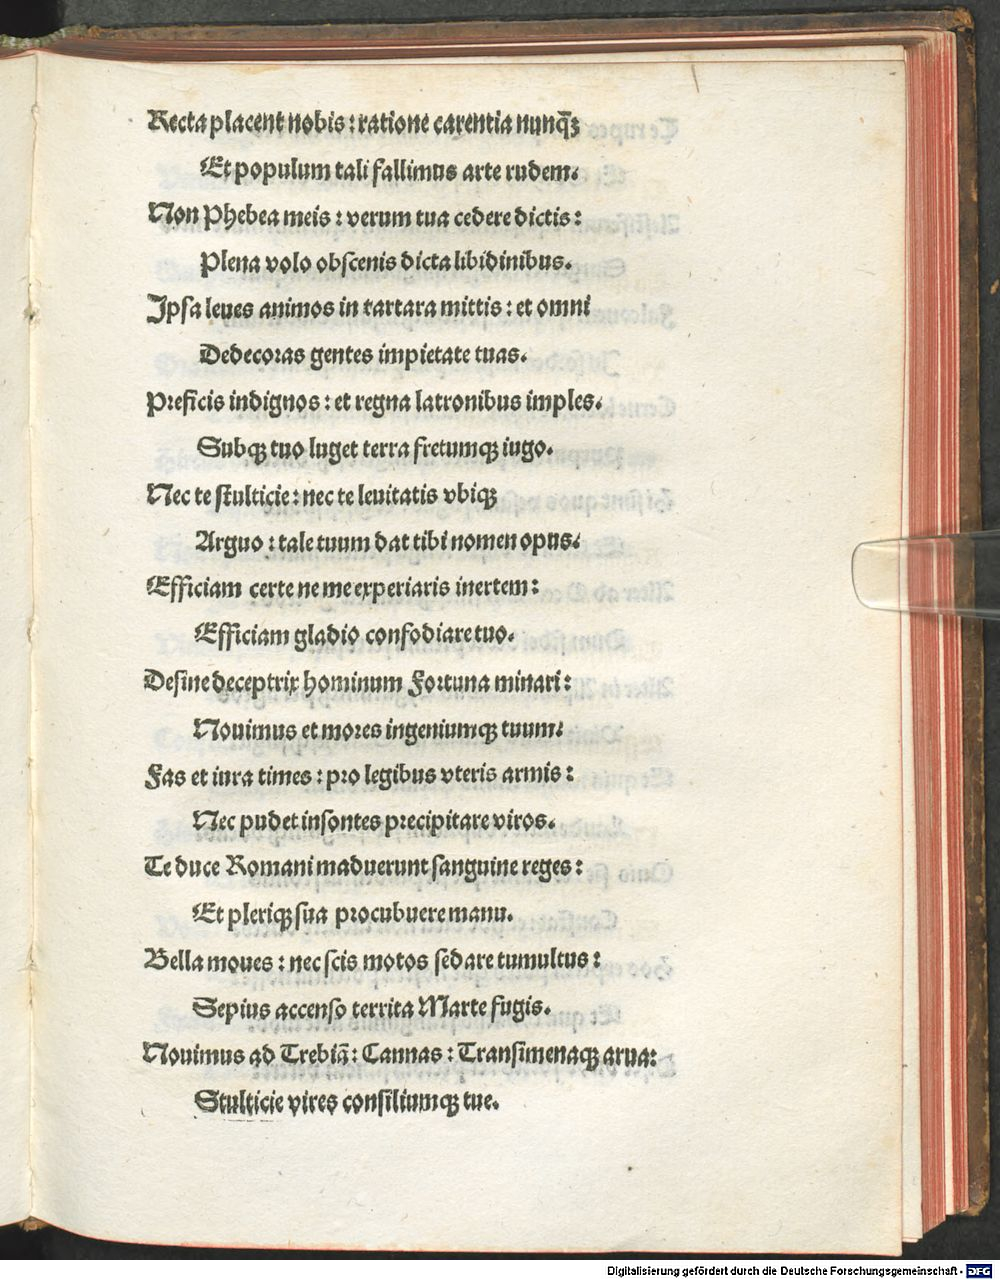 Recta placent nobis : ratione carentia nunq̃ꝫ
Et populum tali fallimus arte rudem.
Non Phebea meis : verum tua cedere dictis :
Plena volo obscenis dicta libidinibus.
Ipsa leues animos in tartara mittis : et omni
Dedecoras gentes impietate tuas.
Preficis indignos : et regna latronibus imples.
Subqꝫ tuo luget terra fretumqꝫ iugo.
Nec te stulticie : nec te leuitatis vbiqꝫ
Arguo : tale tuum dat tibi nomen opus.
Efficiam certe ne me experiaris inertem :
Efficiam gladio confodiare tuo.
Desine deceptrix hominum Fortuna minari :
Nouimus et mores ingeniumqꝫ tuum.
Fas et iura times : pro legibus vteris armis :
Nec pudet insontes precipitare viros.
Te duce Romani maduerunt sanguine reges :
Et pleriqꝫ sua procubuere manu.
Bella moues : nec scis motos sedare tumultus :
Sepius accenso territa Marte fugis.
Nouimus ad Trebiã : Cannas : Transimenaqꝫ arua :
Stulticie vires consiliumqꝫ tue.
Digitalisierung gefördert durch die Deutsche Forschungsgemeinschaft - DFG